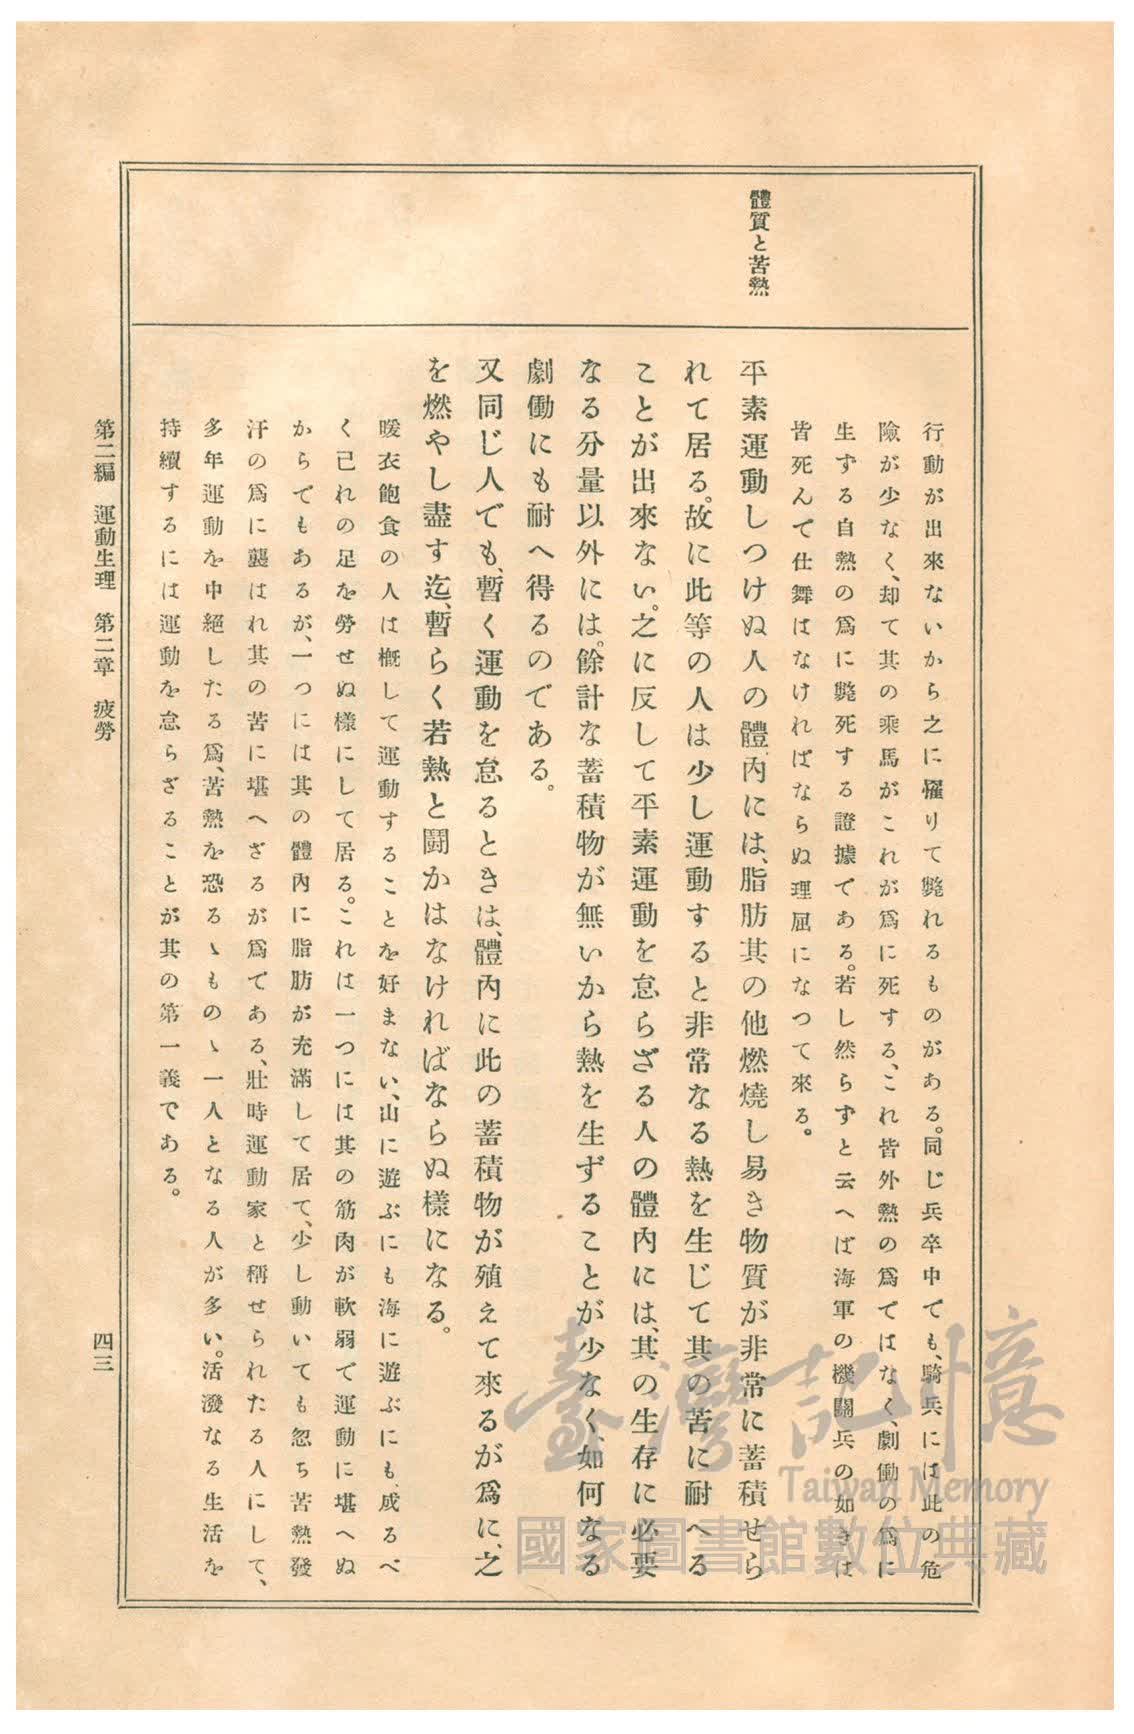 體質と苦熱
行動が出來ないから之に罹りて斃れるものがある。同じ兵卒中でも、騎兵には此の危
險が少なく、却て其の乘馬がこれが爲に死する、これ皆外熱の爲ではなく、劇働の爲に
生ずる自熱の爲に斃死する證據である。若し然らずと云へば海軍の機關兵の如きは
皆死んで仕舞はなければならぬ理屈になつて來る。
平素運動しつけぬ人の體內には、脂肪其の他燃燒し易き物質が非常に蓄積せら
れて居る。故に此等の人は少し運動すると非常なる熱を生じて其の苦に耐へる
ことが出來ない。之に反して平素運動を怠らざる人の體內には、其の生存に必要
なる分量以外には。餘計な蓄積物が無いから熱を生ずることが少なく、如何なる
劇働にも耐へ得るのである。
又同じ人でも、暫く運動を怠るときは、體內に此の蓄積物が殖えて來るが爲に、之
を燃やし盡す迄、暫らく若熱と鬪かはなければならぬ樣になる。
暖衣飽食の人は槪して運動することを好まない、山に遊ぶにも海に遊ぶにも、成るべ
く己れの足を勞せぬ樣にして居る。これは一つには其の筋肉が軟弱で運動に堪へぬ
からでもあるが、一つには其の體內に脂肪が充滿して居て、少し動いても忽ち苦熱發
汗の爲に襲はれ其の苦に堪へざるが爲である、壯時運動家と稱せられたる人にして、
多年運動を中絕したる爲、苦熱を恐るゝものゝ一人となる人が多い。活潑なる生活を
持續するには運動を怠らざることが其の第一義である。
第二編 運動生理 第二章 疲勞
四三
臺灣記憶
Taiwan Memory
國家圖書館數位典藏